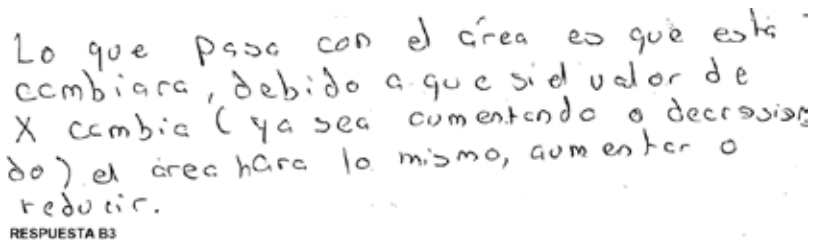 Lo que pasa con el área es que está
cambiara, debido a que si el valor de
X cambia (ya sea aumentando o decresien
do) el área hara lo mismo, aumentar o
reducir.
RESPUESTA B3